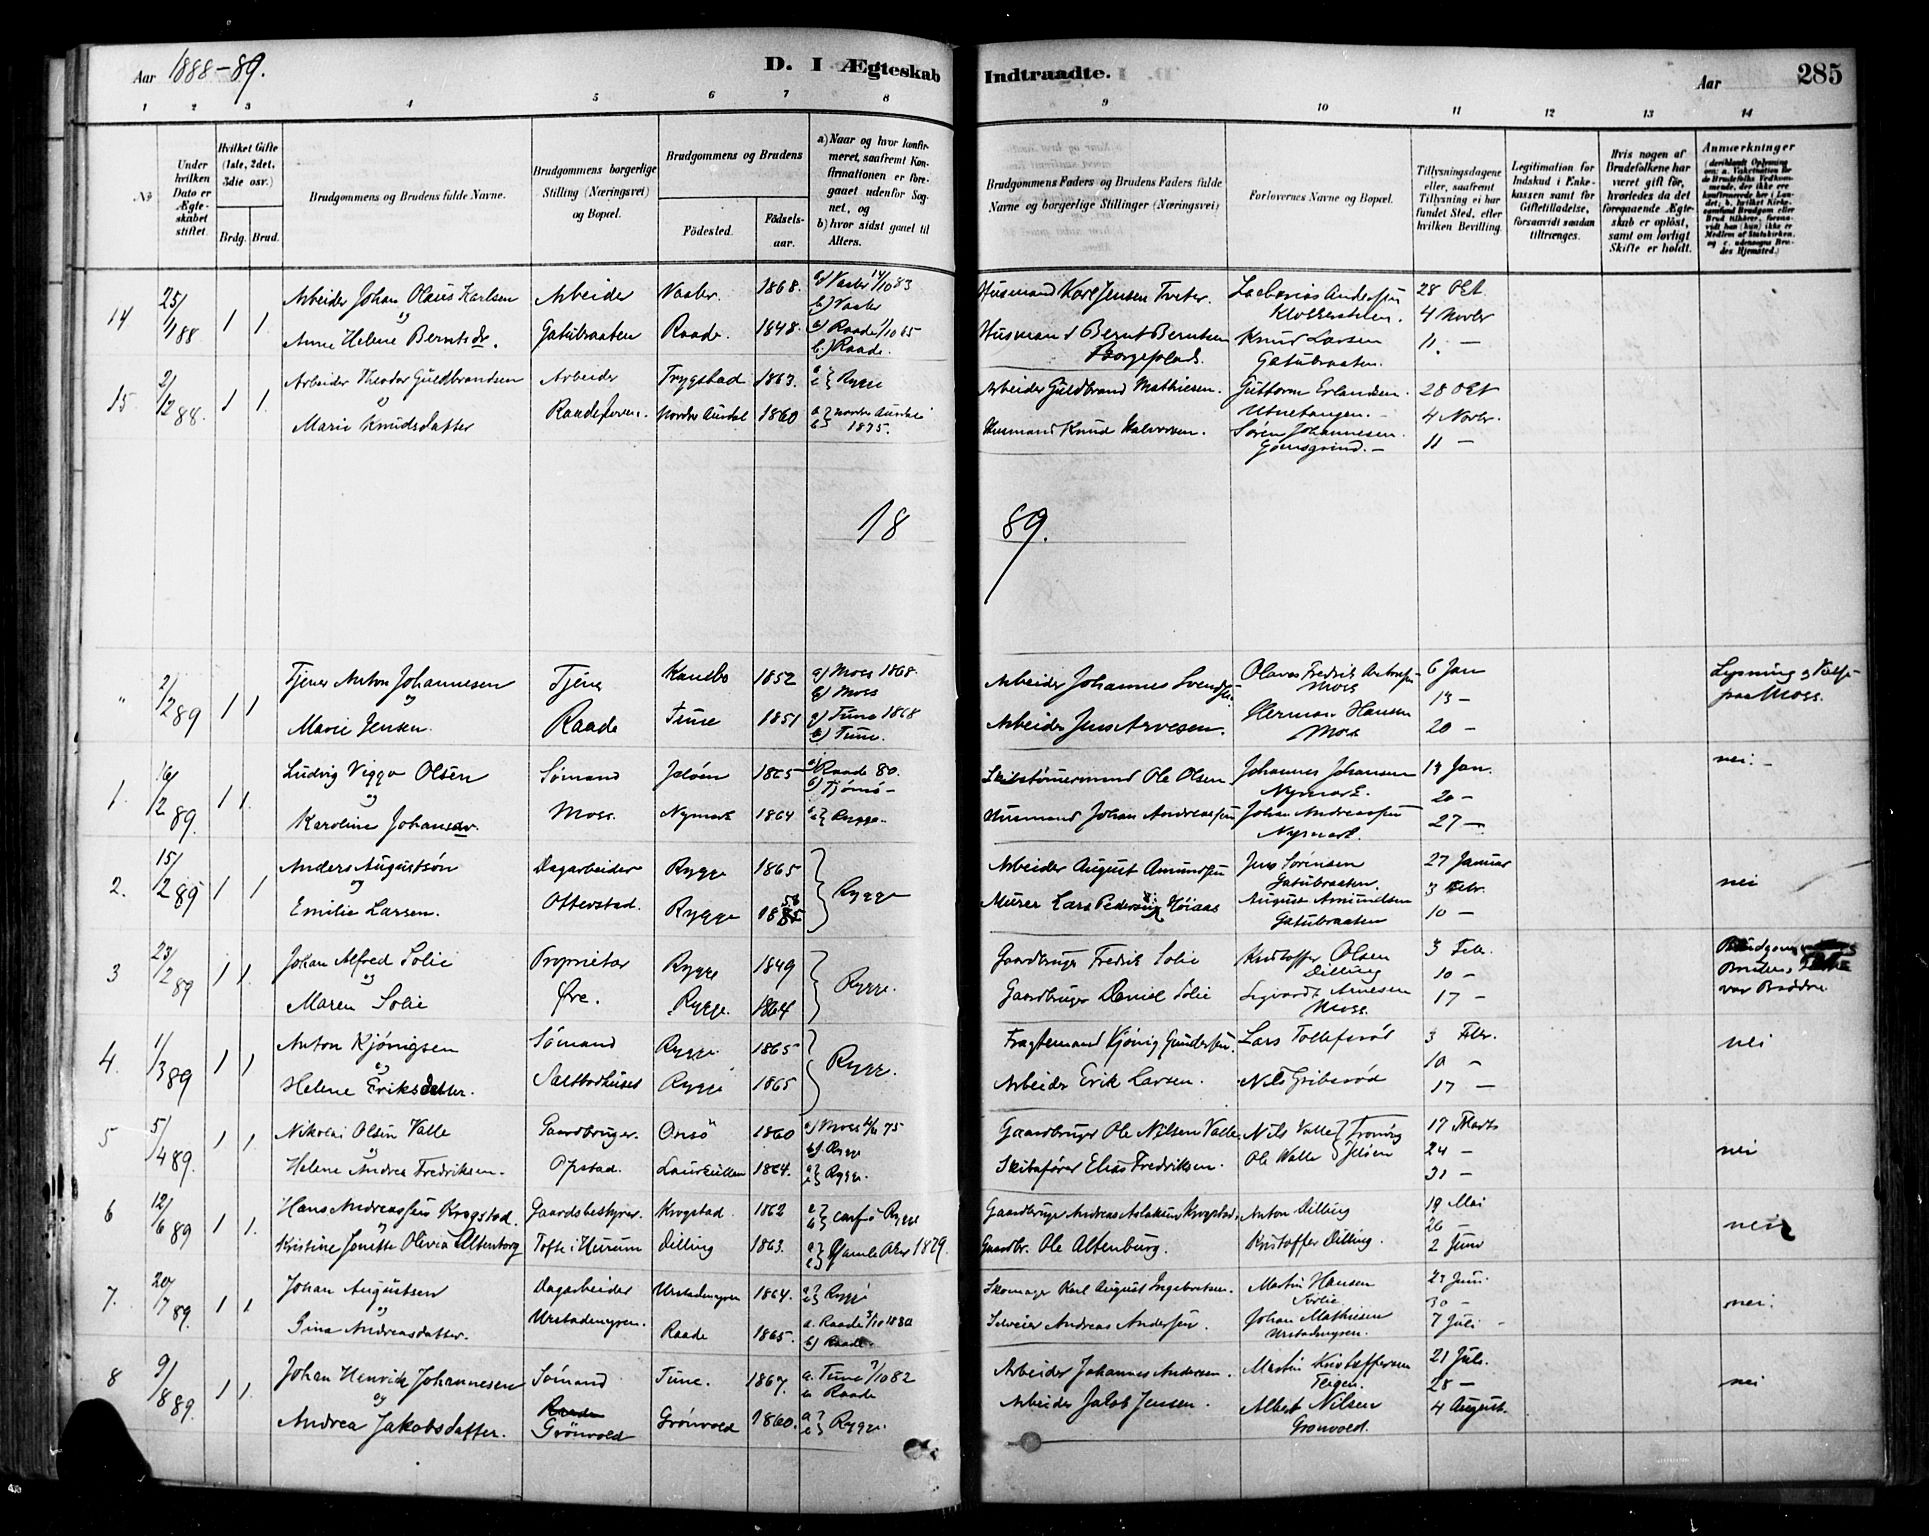 Aar 1888-89.
D. I Ægteskab
Indtraadte.
Aar
285
1 2 3 4 5 6 7 8 9 10 11 12 13 14
No
Under hvilken Dato er Ægteskabet stiftet.
Hvilket Gifte (1ste, 2det, 3die osv.)
Brdg. Brud.
Brudgommens og Brudens fulde Navne.
Brudgommens borgerlige Stilling (Næringsvei) og Bopæl.
Brudgommens og Brudens
Födested.
Födselsaar.
a) Naar og hvor konfirmeret, saafremt Konfirmationen er foregaaet udenfor Sognet, og
b) hvor sidst gaaet til Alters.
Brudgommens Faders og Brudens Faders fulde Navne og borgerlige Stillinger (Næringsvei)
Forlovernes Navne og Bopæl.
Tillysningsdagene eller, saafremt Tillysning ei har fundet Sted, efter hvilken Bevilling.
Legitimation for Indskud i Enkekassen samt for Giftetilladelse, forsaavidt saadan tiltrænges.
Hvis nogen af Brudefolkene har været gift för, hvorledes da det foregaaende Ægteskab er oplöst, samt om lovligt Skifte er holdt.
Anmærkninger
14 25/11 88 1 1. Arbeider Johan Olaus Karlsen Arbeider Vasbr. 1868. a) Vasbr 14/10 83 b) Vasbr Husmand Karl Jensen Tveter. Zacharias Andersen 28 Okt.
og 4 Novbr
Anne Helene Berntsdr. Gatubraaten Raade. 1848. a) Raade 1/10 65 b.) Raade. Husmand Bernt Berntsen Knud Larsen Gatubraaten. 11. —
15. 2/12 88. 1 1. Arbeider Theodor Guldbrandsen Arbeider Trygstad 1863. a} b} Rygge Arbeider Guldbrand Mathiesen. Guttorm Erlandsen 28 Okt
og 4 Novbr.
Marie Knudsdatter Nordre Aurdal 1860 a} b} Nordre Aurdal 1875. Husmand Knud Halvorsen. Sören Johannesen. 11 —
18 89.
" 2/12 89 1 1 Tjener Anton Johannesen Tjener 1852 a) Moss 1868. b) Moss Arbeider Johannes Svendsen Olaves Fredrik Moss 6 Jan Lysning og Vielse paa Moss.
og 13 —
Marie Jensen. Raade Tune 1851 a) Tune 1868 b) Tune. Arbeider Jens Arvesen. Herman Hansen Moss 20 —
1. 16/2 89. 1 1. Ludvig Viggo Olsen Sömand Jelöen 1865 a) Raade 80. b) Tjömö — Skibstömmermand Ole Olsen Johannes Johansen Nymark. 13 Jan. nei. —
og 20 —
Karoline Johansdr. Moss. Nymark 1864 a} b} Rygge. Husmand Johan Andreassen Johan Andreassen Nymark. 27 —
2. 15/2 89 1 1 Anders Augustsön Dagarbeider Rygge 1865 Rygge Arbeider August Amundsen Jens Sörensen Gatubraaten. 27 Januar nei
og 3 Febr.
Emilie Larsen. Otterstad. Rygge 1858 Murer Lars Pedersen Höiaas August Amundsen Gatubraaten 10 —
3 23/2 89 1 1. Johan Alfred Solie Proprietær Rygge 1849 Rygge. Gaardbruger Fredrik Solie Kristoffer Olsen Dilling 3 Febr.
og 10 —
Maren Solie Öre. Rygge. 1864 Gaardbruger Daniel Solie Sigvardt Arnesen Moss. 17 — var Brödre.
4. 1/3 89 1 1 Anton Kjönigsen Sömand Rygge. 1865 Rygge. Fragtemand Kjönig Gundersen. Lars Tollefsröd 3 Febr. nei
og 10 —
Helene Eriksdatter. Saltbodhuset Rygge 1865 Arbeider Erik Larsen. Nils Gribsröd 17 —
5 5/4 89. 1 1 Nikolai Olsen Valle Gaardbruger. Onsö 1860 a) Moss 75 b). Rygge Gaardbruger Ole Nilsen Valle. Nils Valle 17 Marts nei
og 24 —
Helene Andrea Fredriksen. Opstad. 1864. a} b} Rygge. Skibsförer Elias Fredriksen. Ole Valle Jelöen 31 —
6 12/6 89 1 1. Hans Andreassen Krogstad. Gaardsbestyrer. Krogstad. 1862 Rygge Gaardbruger Andreas Aslaksen Krogstad. Anton Dilling 19 Mai nei
og 26 —
Kristine Jonette Olivia Altenborg Tofte i Hurum Dilling 1863. Gamle Aker 1879. Gaardbr. Ole Altenburg. Kristoffer Dilling. 2 Juni
7. 20/7 89. 1 1 Johan Augustsen Dagarbeider Urstadmyren 1864. a} b} Rygge Skomager Karl August Ingebretsen. Martin Hansen 23 Juni. nei.
og 30 —
Gina Andreasdatter. Urstadmyren. Raade 1865. a. Raade 3/10 1880 b) Raade. Andreas Andersen. Johan Mathiesen Urstadmyren. 7 Juli —
8 9/8 89. 1 1. Johan Henrick Johannesen Sömand Tune. 1867. a. Tune 7/10 82 b. Raade Arbeider Johannes Andersen. Martin Kristoffersen 21 Juli. nei
og 28 —
Andrea Jakobsdatter. Grönvold Grönvold 1860. a} b} Rygge Arbeider Jakob Jensen. Albert Nilsen Grönvold. 4 August.